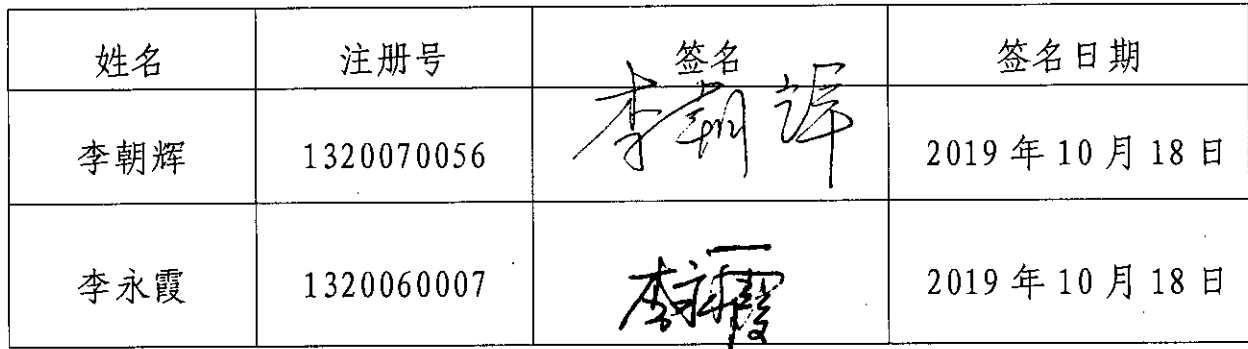 姓名 注册号 签名 签名日期
李朝辉 1320070056 李朝辉 2019年10月18日
李永霞 1320060007 李永霞 2019年10月18日